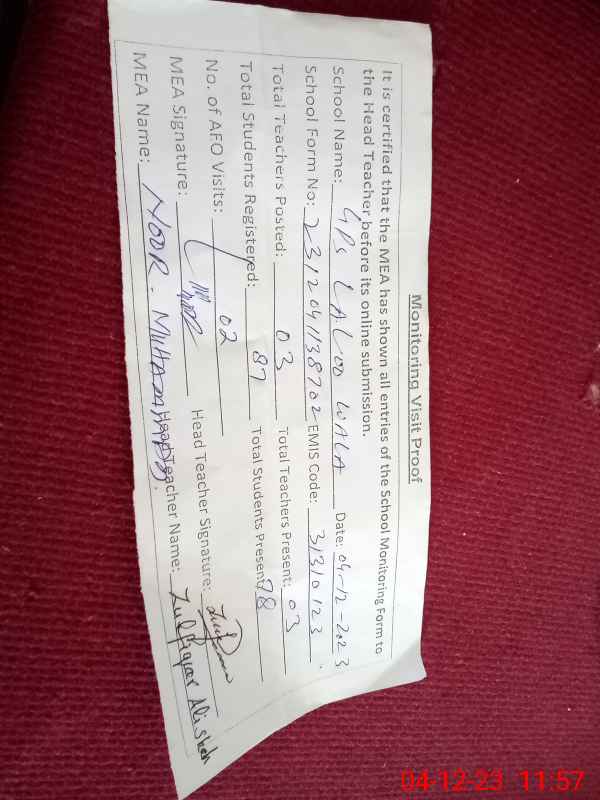 Monitoring Visit Proof
It is certified that the MEA has shown all entries of the School Monitoring Form to
the Head Teacher before its online submission.
School Name: GPS LALOO WALA Date: 04-12-2023
School Form No: 231204138702 EMIS Code: 31310123
Total Teachers Posted: 03 Total Teachers Present: 03
Total Students Registered: 87 Total Students Present: 78
No. of AFO Visits: 02
MEA Signature: Head Teacher Signature:
MEA Name: NOOR. MUHAMMAD Head Teacher Name: Zulfiqar Ali Shah
04-12-23 11:57